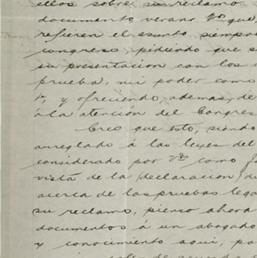 ellos sobre su reclamo
documento verano Vd. que,
refieren el asunto, siempre
congreso, pidiendo que s
su presentacion con los
prueba, mi poder como
y ofreciendo, ademas, de
á la atencion del Congres
Creo que esto, siendo
arreglado á las leyes del
considerado por Vd. como
vista de la declaracion
acerca de las pruebas lega
su reclamo, pienso ahora
documentos á un abogado
y conocimiento aqui, pa